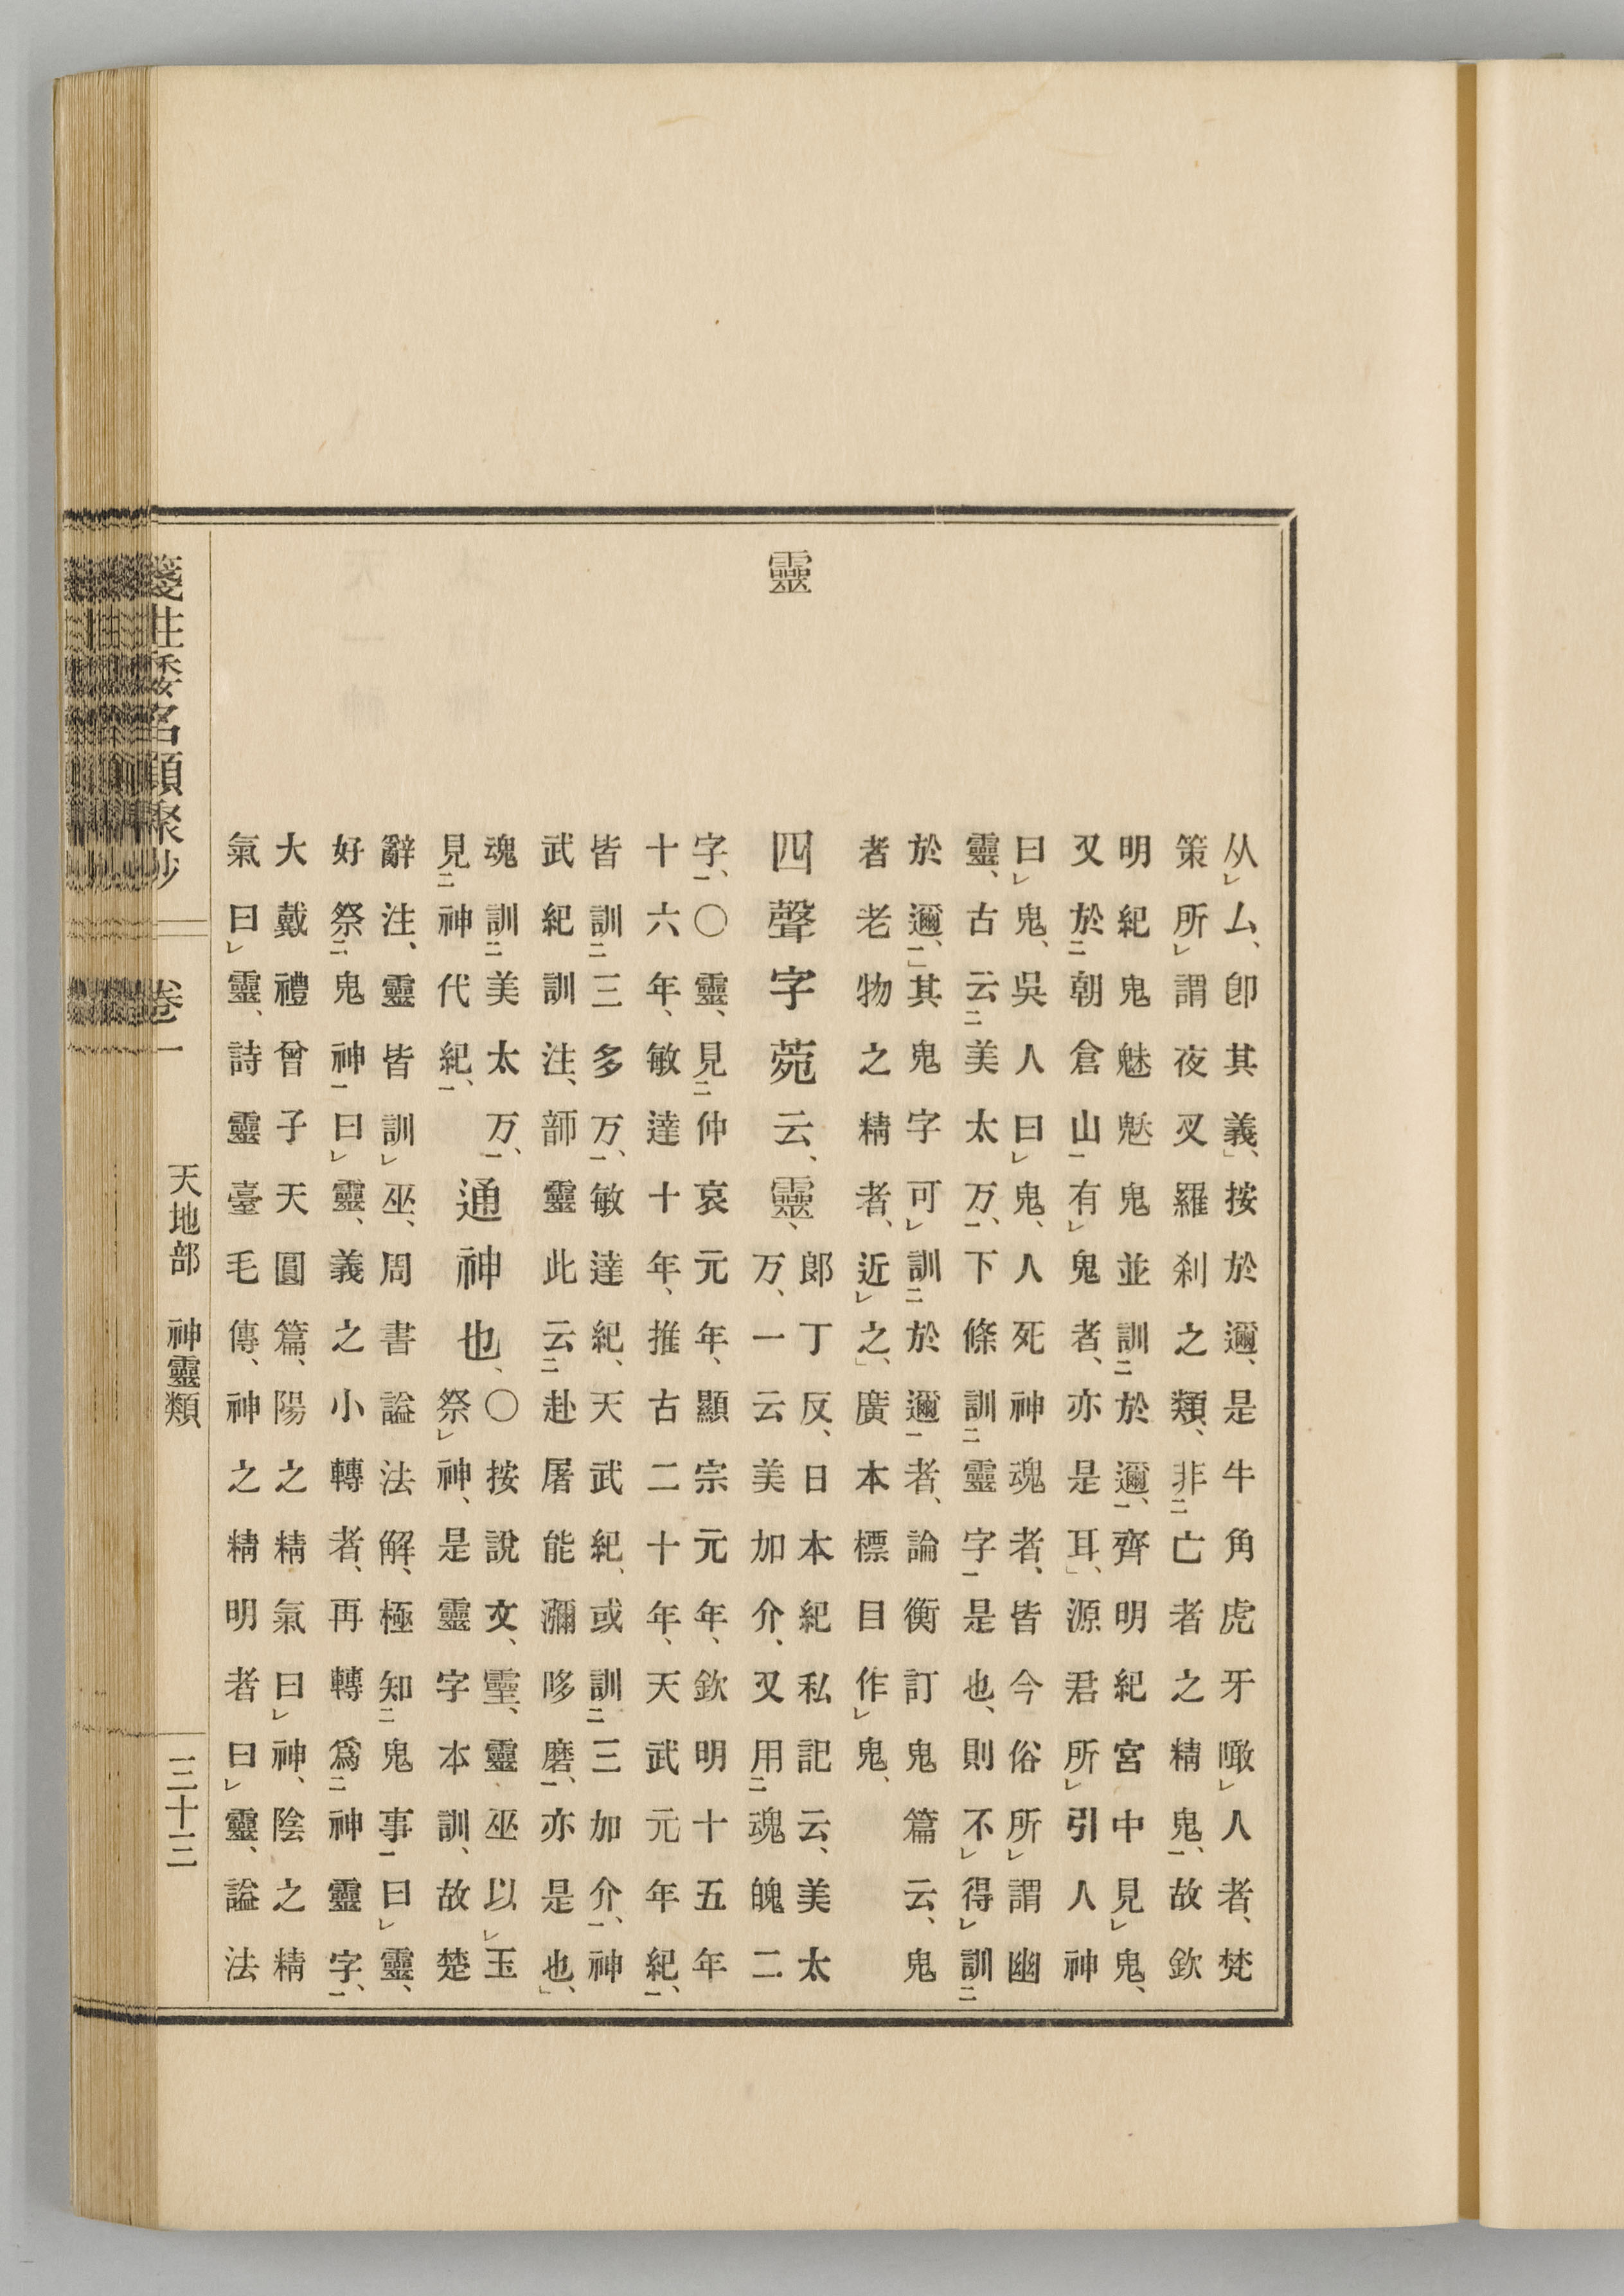 从レ厶、卽其義、」按於邇、是牛角虎牙噉レ人者、梵
策所レ謂夜叉羅刹之類、非二亡者之精鬼一、故欽
明紀鬼魅魃鬼並訓二於邇一、齊明紀宮中見レ鬼、
又於二朝倉山一有レ鬼者、亦是耳、」源君所レ引人神
曰レ鬼、吳人曰レ鬼、人死神魂者、皆今俗所レ謂幽
靈、古云二美太万一、下條訓二靈字一是也、則不レ得レ訓二
於邇一、」其鬼字可レ訓二於邇一者、論衡訂鬼篇云、鬼
者老物之精者、近レ之、」廣本標目作レ鬼、
靈
四聲字苑云、靈、
郎丁反、日本紀私記云、美太
万、一云美加介、又用二魂魄二
字一、〇靈、見二仲哀元年、顯宗元年、欽明十五年
十六年、敏達十年、推古二十年、天武元年紀一、
皆訓二三多万一、敏達紀、天武紀、或訓二三加介一、神
武紀訓注、韴靈此云二赴屠能瀰哆磨一、亦是也、」
魂訓二美太万一、
見二神代紀一、
通神也、
〇按說文、𤫊、靈巫以レ玉
祭レ神、是靈字本訓、故楚
辭注、靈皆訓レ巫、周書謚法解、極知二鬼事一曰レ靈、
好祭二鬼神一曰レ靈、義之小轉者、再轉爲二神靈字一、
大戴禮曾子天圓篇、陽之精氣曰レ神、陰之精
氣曰レ靈、詩靈臺毛傳、神之精明者曰レ靈、謚法
箋注倭名類聚抄 卷一 天地部 神靈類 三十三